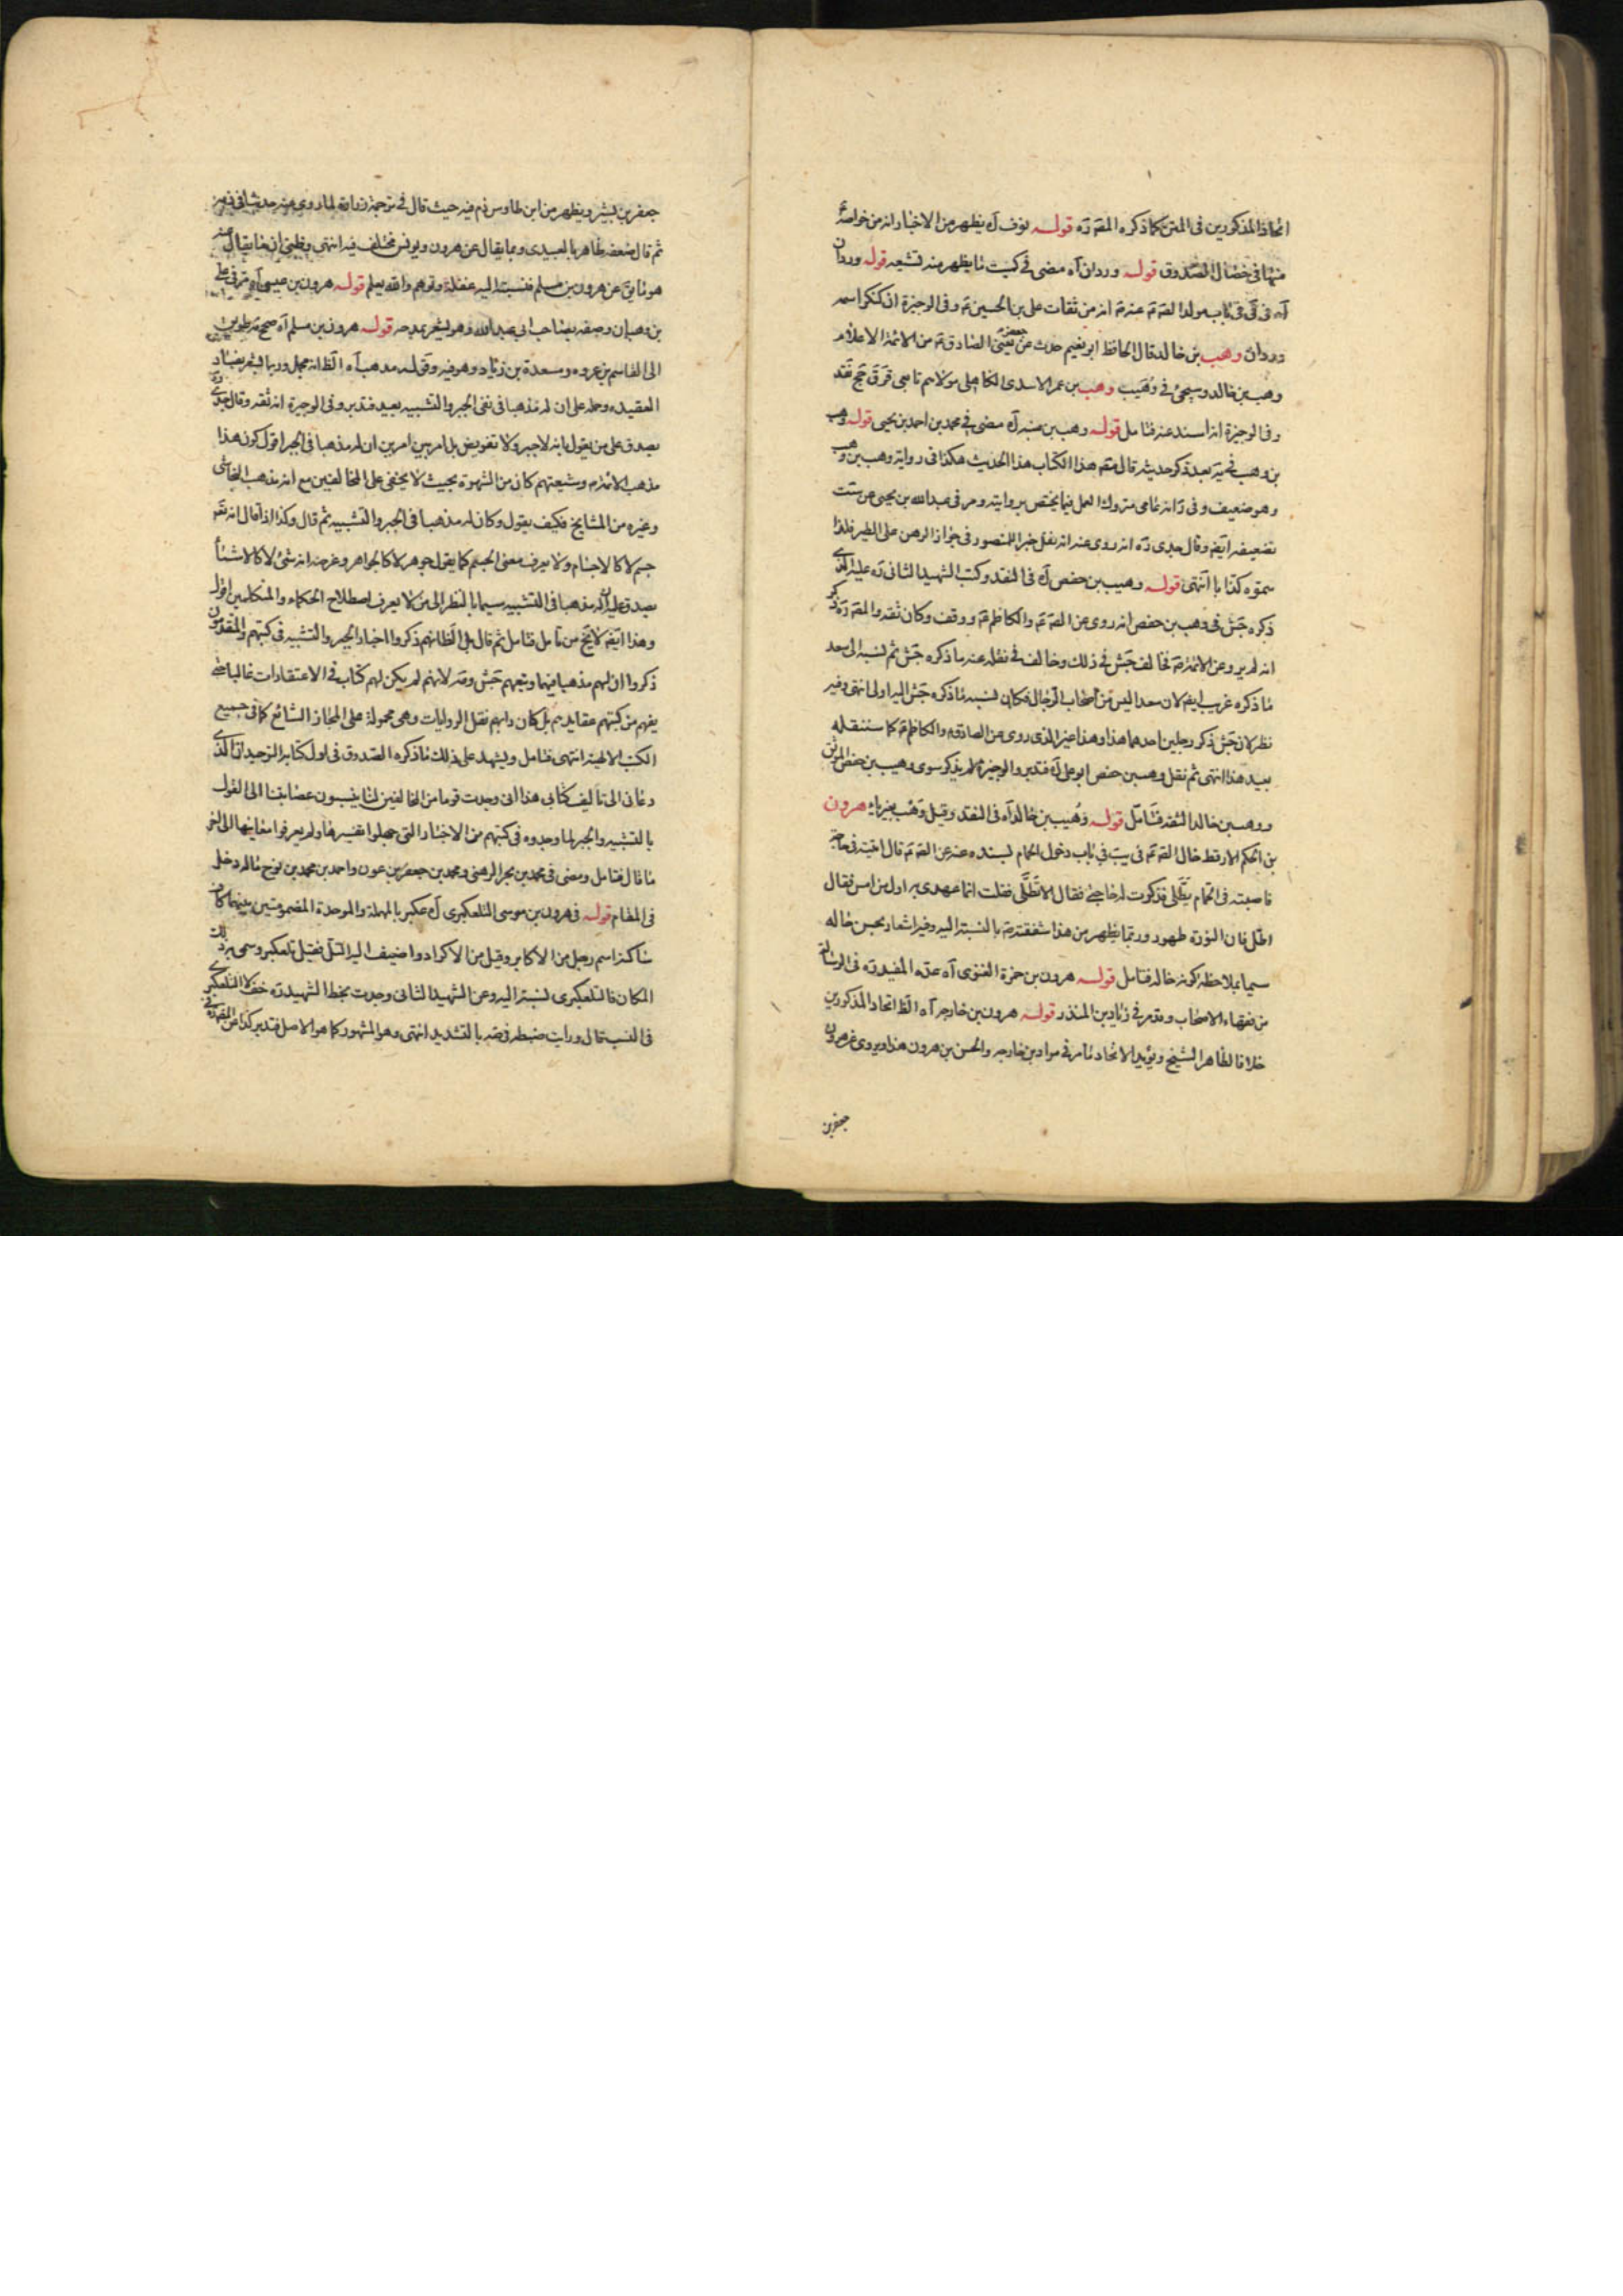 اتحاد المذكورين فى المتن كما ذكره المقدره قوله نوف آه يظهر من الاخبار انه من خواصه ع
منها فى خصال الصدوق قوله وردان آه مضى فى كيت ما يظهر منه تشيعه قوله وردان
آه فى فى كتاب مولد الصم عنه م انه من ثقات على بن الحسين م وفى الوجيزة ان كنكر اسمه
وردان وهب بن خالد قال الحافظ ابو نعيم حدث عن جعفر يعنى الصادق م من الائمة الاعلام
وهب بن خالد وسيجئ فى وهيب وهب بن عمر الاسدى الكاهلى مولاهم تابعى ق ق جج نقد
وفى الوجيزة انه اسند عنه فتامل قوله وهب بن منبه آه مضى فى محمد بن احمد بن يحيى قوله وهب
بن وهب فى يه بعد ذكر حديثه قال مصنف هذا الكتاب هذا الحديث هكذا فى رواية وهب بن وهب
وهو ضعيف وفى انه عامى متروك العمل فيما يختص بروايته ومر فى عبد الله بن يحيى عن ست
تضعيفه ايضا وقال جدى ره انه روى عنه انه نقل خبرا للمنصور فى جواز الرهن على الطير فلذا
سموه كذابا انتهى قوله وهيب بن حفص آه فى النقد وكتب الشهيد الثانى ره عليه الذى
ذكره جش فى وهب بن حفص انه روى عن الصم والكاظم م ووقف وكان ثقة والمقدره ذكر
انه لم يرو عن الائمة م فخالف جش فى ذلك وخالف فى نقله عنه ما ذكره جش ثم نسبه الى سعد
ما ذكره غريب ايضا لان سعدا ليس من اصحاب الرجال فكان نسبه ما ذكره جش اليه اولى انتهى وفيه
نظر لان جش ذكر رجلين احدهما هذا وهذا غير الذى روى عن الصادق م والكاظم م كما سننقله
بعيد هذا انتهى ثم نقل وهيب بن حفص ابو على آه فتدبر والوجيزة لم يذكر سوى وهيب بن حفص الموثق
ووهيب بن خالد الثقه فتامل قوله وهيب بن خالد آه فى النقد وقيل وهب بغير ياء هرون
بن الحكم الارقط خال الصم فى يب فى باب دخول الحمام بسنده عنه عن الصم قال اتيته فى حاجة
فاصبته فى الحمام يتطلى فذكرت له حاجتى فقال الا تطلى فقلت انما عهدى به اول من امس فقال
اطل فان النورة طهور وربما يظهر من هذا شفقته م بالنسبة اليه وفيه اشعار بحسن حاله
سيما بملاحظة كونه خاله فتامل قوله هرون بن حمزة الغنوى آه عده المفيد ره فى الرسالة
من فقهاء الاصحاب ومر فى زياد بن المنذر قوله هرون بن خارجه آه الظ اتحاد المذكورين
خلافا لظاهر الشيخ ويؤيد الاتحاد ما مر فى مراد بن خارجه والحسن بن هرون هذا ويروى عن هرون
جعفر بن
جعفر بن بشير ويظهر من ابن طاوس ذم فيه حيث قال فى ترجمة زرارة لما روى عنه حديثا فى ذمه
ثم قال ضعفه ظاهر بالعبيدى وبما يقال عن هرون ويونس مختلف فيه انتهى وظنى ان ما يقال عنه
هو ما يق عن هرون بن مسلم فنسبته اليه غفلة وتوهم والله يعلم قوله هرون بن عيسى آه مر فى على
بن وهبان وصفه بصاحب ابى عبد الله وهو يشعر بمدحه قوله هرون بن مسلم آه صحح مه طريق
الى القاسم بن عروه ومسعدة بن زياد وهو فيه وقوله مذهب آه الظ انه مجمل وربما يشعر بفساد
العقيده وحمله على ان له مذهبا فى نفى الجبر والتشبيه بعيد فتدبر وفى الوجيزة انه ثقه وقال جدى ره
يصدق على من يقول بانه لا جبر ولا تفويض بل امر بين امرين ان له مذهبا فى الجبر اقول كون هذا
مذهب الائمة م وشيعتهم كان من الشهرة بحيث لا يخفى على المخالفين مع انه مذهب النجاشى
وغيره من المشايخ فكيف يقول وكان له مذهبا فى الجبر والتشبيه ثم قال وكذا اذا قال انه تعه
جسم لا كالاجسام ولا يعرف معنى الجسم كما يقول جوهر لا كالجواهر وغرضه انه شئ لا كالاشياء
يصدق عليه ان له مذهبا فى التشبيه سيما بالنظر الى من لا يعرف اصطلاح الحكماء والمتكلمين اقول
وهذا ايضا لا يخ من تامل فتامل ثم قال بلى الظ انهم ذكروا اخبار الجبر والتشبيه فى كتبهم والمتقدمون
ذكروا ان لهم مذهبا فيهما وتبعهم جش ومه لانهم لم يكن لهم كتاب فى الاعتقادات غالبا حتى
يفهم من كتبهم عقايدهم بل كان دابهم نقل الروايات وهى محمولة على المجاز الشائع كما فى جميع
الكتب الالهية انتهى فتامل ويشهد على ذلك ما ذكره الصدوق فى اول كتابه التوحيد ان الذى
دعانى الى تاليف كتابى هذا انى وجدت قوما من المخالفين لنا ينسبون عصابتنا الى القول
بالتشبيه والجبر لما وجدوه فى كتبهم من الاخبار التى جهلوا تفسيرها ولم يعرفوا معانيها الى اخر
ما قال فتامل ومضى فى محمد بن بحر الرهنى ومحمد بن جعفر بن عون واحمد بن محمد بن نوح ماله دخل
فى المقام قوله فى هرون بن موسى التلعكبرى آه عكبر بالمهملة والموحدة المضمومتين بينهما كاف
ساكنة اسم رجل من الاكابر وقيل من الاكراد واضيف اليه التل فقيل تلعكبر وسمى به ذلك
المكان فالتلعكبرى نسبة اليه وعن الشهيد الثانى وجدت بخط الشهيد ره خف لام التلعكبرى
فى النسب قال ورايت ضبطه فى صه بالتشديد انتهى وهو المشهور كما هو الاصل فتدبر